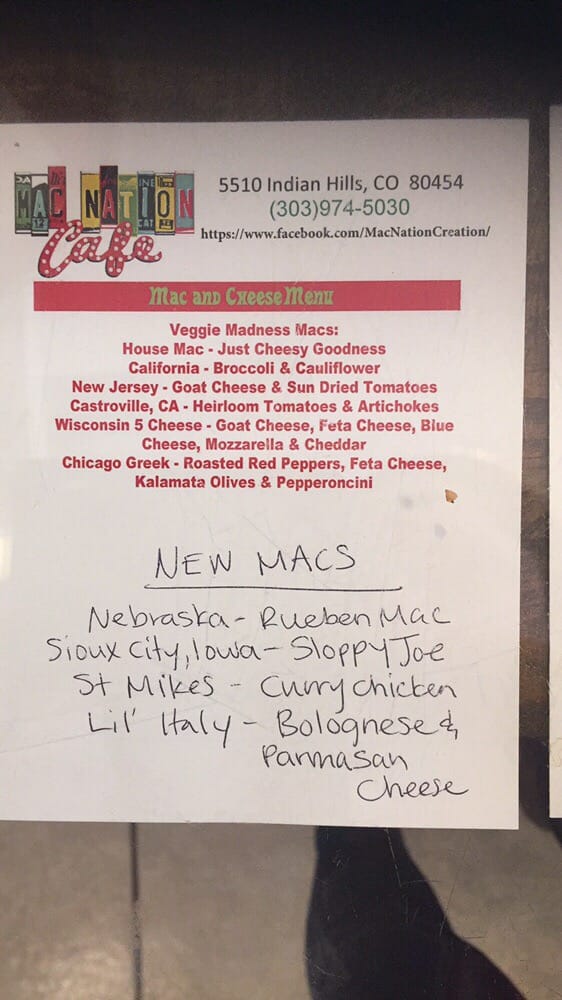 MAC NATION
Cafe
5510 Indian Hills, CO 80454
(303)974-5030
https://www.facebook.com/MacNationCreation/
Mac and Cheese Menu
Veggie Madness Macs:
House Mac - Just Cheesy Goodness
California - Broccoli & Cauliflower
New Jersey - Goat Cheese & Sun Dried Tomatoes
Castroville, CA - Heirloom Tomatoes & Artichokes
Wisconsin 5 Cheese - Goat Cheese, Feta Cheese, Blue
Cheese, Mozzarella & Cheddar
Chicago Greek - Roasted Red Peppers, Feta Cheese,
Kalamata Olives & Pepperoncini
NEW MACS
Nebraska - Rueben Mac
Sioux City, Iowa - Sloppy Joe
St Mikes - Curry chicken
Lil' Italy - Bolognese &
Parmasan
Cheese